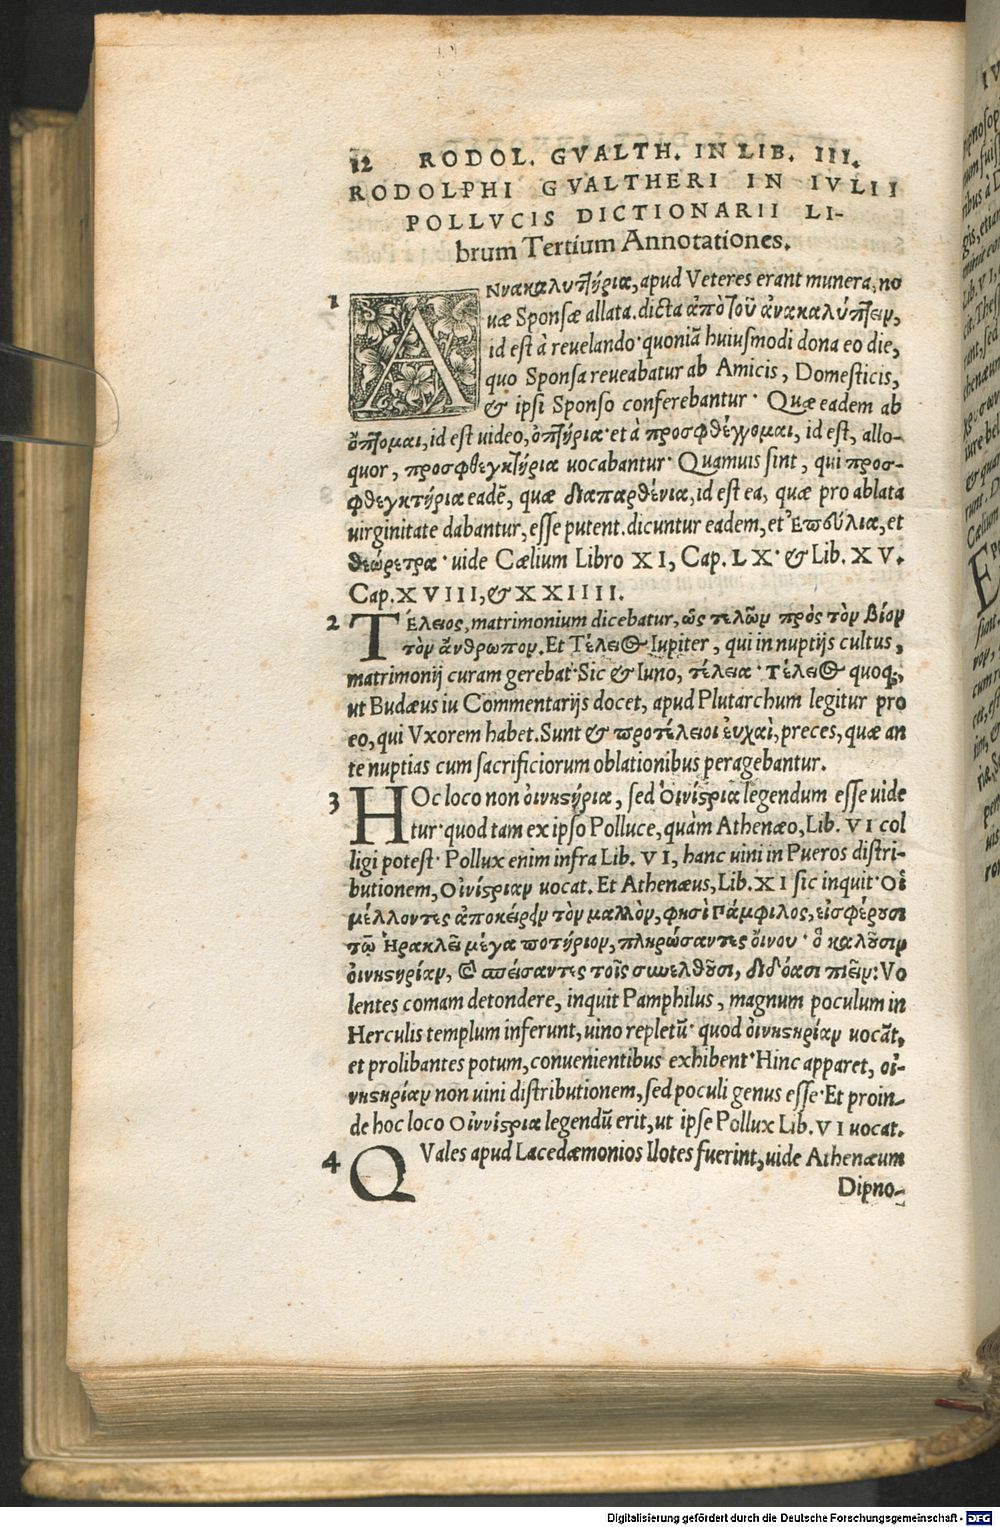 12 RODOL. GVALTH. IN LIB. III.
RODOLPHI GVALTHERI IN IVLII
POLLVCIS DICTIONARII LI-
brum Tertium Annotationes.
1 ANνακαλυπτήρια, apud Veteres erant munera, no
uæ Sponsæ allata. dicta ἀπὸ τοῦ ἀνακαλύπτειν,
id est à reuelando· quoniā huiusmodi dona eo die,
quo Sponsa reueabatur ab Amicis, Domesticis,
& ipsi Sponso conferebantur· Quæ eadem ab
ὄπτομαι, id est uideo, ὀπτήρια· et à προσφθέγγομαι, id est, allo-
quor, προσφθεγκτήρια uocabantur· Quamuis sint, qui προσ-
φθεγκτήρια eadē, quæ διαπαρθένια, id est ea, quæ pro ablata
uirginitate dabantur, esse putent. dicuntur eadem, et Ἐπαύλια, et
θεώρετρα· uide Cælium Libro XI, Cap. LX· & Lib. XV.
Cap. XVIII, & XXIIII.
2 TΈλειος, matrimonium dicebatur, ὡς τελῶν πρὸς τὸν βίον
τὸν ἄνθρωπον. Et Τέλειος Iupiter, qui in nuptijs cultus,
matrimonij curam gerebat· Sic & Iuno, τέλεια· Τέλειος quoq;,
ut Budæus iu Commentarijs docet, apud Plutarchum legitur pro
eo, qui Vxorem habet. Sunt & προτέλειοι ἐυχαὶ, preces, quæ an
te nuptias cum sacrificiorum oblationibus peragebantur.
3 HOc loco non ὀινιστήρια, sed Ὀινίστρια legendum esse uide
tur· quod tam ex ipso Polluce, quàm Athenæo, Lib. VI col
ligi potest· Pollux enim infra Lib. VI, hanc uini in Pueros distri-
butionem, Οἰνίστριαν uocat. Et Athenæus, Lib. XI sic inquit· Οἱ
μέλλοντες ἀποκείρειν τὸν μαλλὸν, φησὶ Πάμφιλος, εἰσφέρουσι
τῷ Ἡρακλεῖ μέγα ποτήριον, πληρώσαντες ὄινου· ὃ καλοῦσιν
ὀινιστηρίαν, καὶ σπείσαντες τοῖς συνελθοῦσι, διδόασι πιεῖν: Vo
lentes comam detondere, inquit Pamphilus, magnum poculum in
Herculis templum inferunt, uino repletū· quod ὀινηστηρίαν uocāt,
et prolibantes potum, conuenientibus exhibent· Hinc apparet, οἰ-
νηστηρίαν non uini distributionem, sed poculi genus esse· Et proin-
de hoc loco Οἰννίστρια legendū erit, ut ipse Pollux Lib. VI uocat.
4 QVales apud Lacedæmonios Ilotes fuerint, uide Athenæum
Dipno-
Digitalisierung gefördert durch die Deutsche Forschungsgemeinschaft - DFG